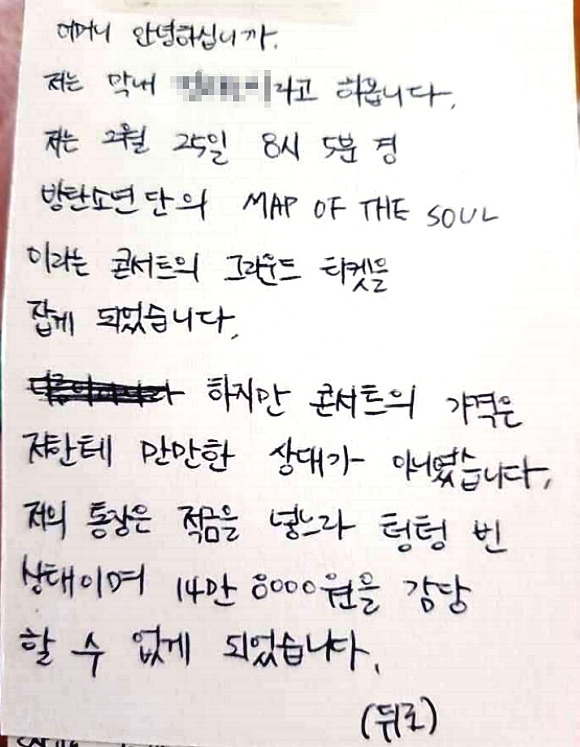 어머니 안녕하십니까.
저는 막내 라고 하옵니다.
저는 2월 25일 8시 5분 경
방탄소년단의 MAP OF THE SOUL
이라는 콘서트의 그라운드 티켓을
잡게 되었습니다.
하지만 콘서트의 가격은
저한테 만만한 상대가 아니였습니다.
저의 통장은 적금을 넣느라 텅텅 빈
상태이며 14만 8000원을 감당
할 수 없게 되었습니다.
(뒤로)